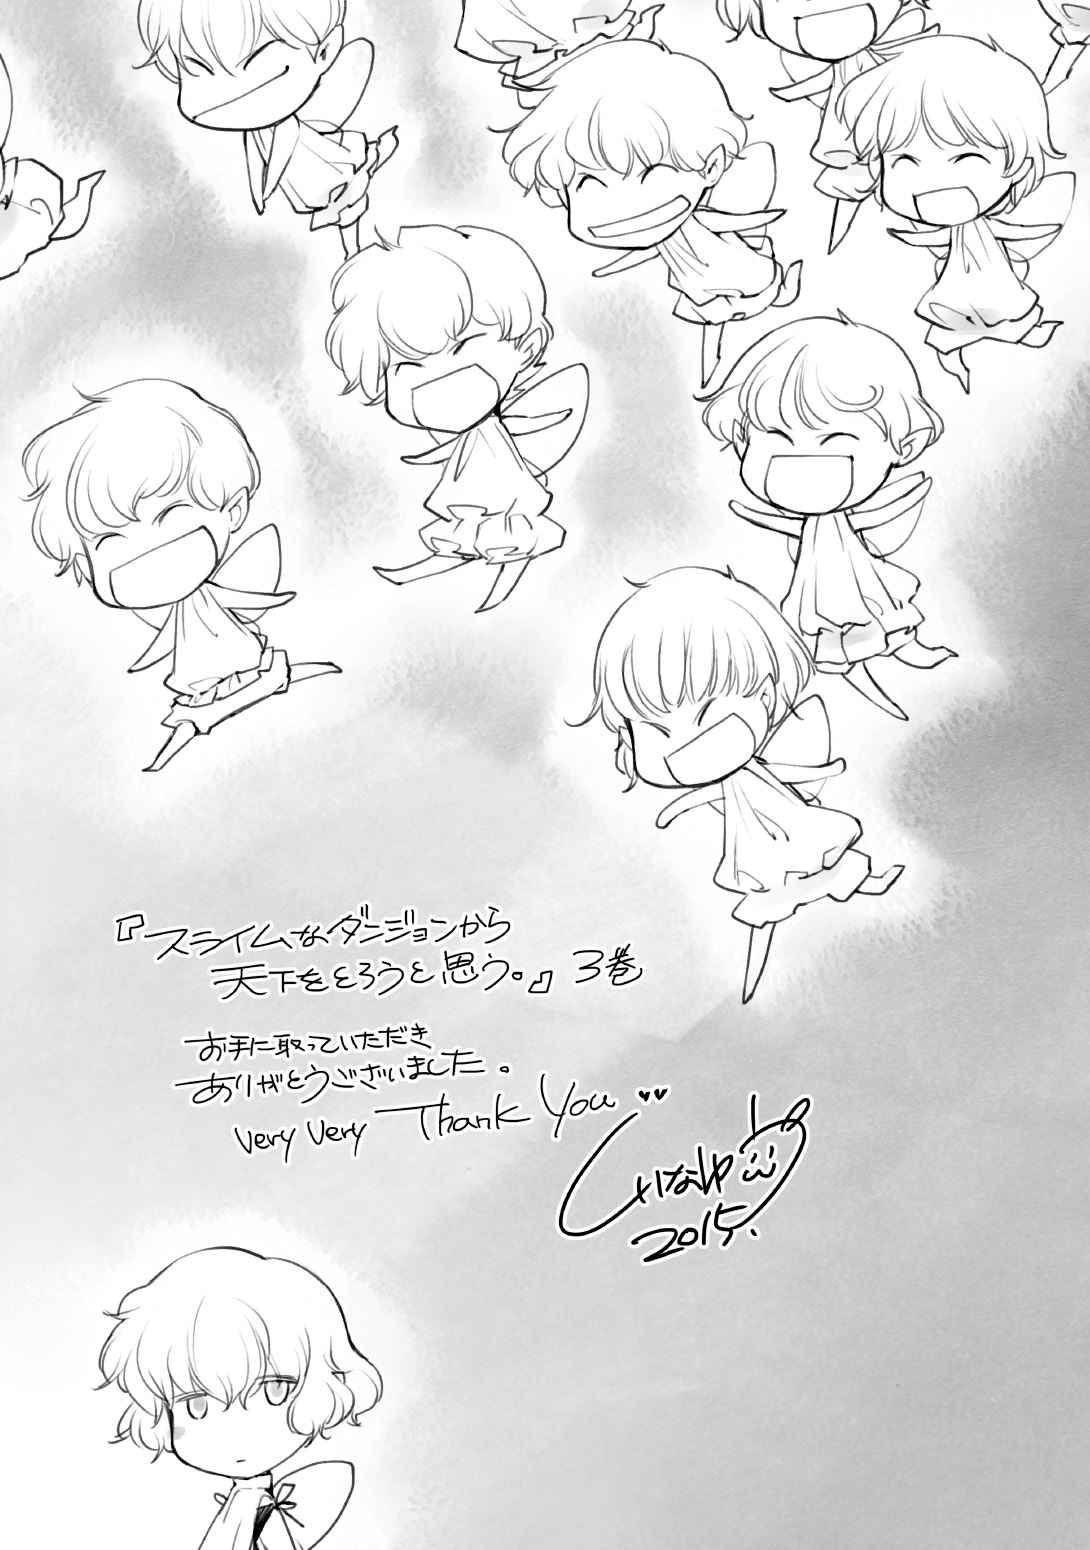 『スライムなダンジョンから
天下をとろうと思う。』 3巻
お手に取っていただき
ありがとうございました。
very very Thank You ♥♥
2015.